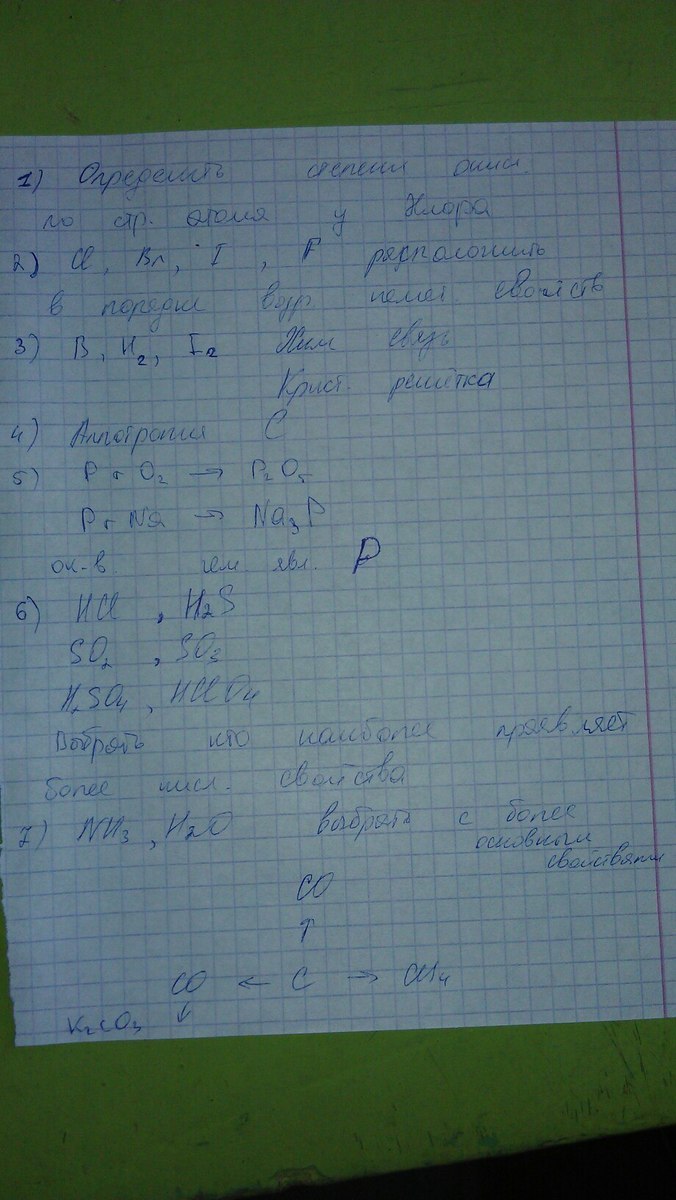 1) Определить степени окисл.
по стр. атома у Хлора
2) Cl, Br, I, F расположить
в порядке возр. немет. свойств
3) B, H₂, I₂ Хим связь
Крист. решётка
4) Аллотропия C
5) P + O₂ → P₂O₅
P + Na → Na₃P
ок-в. чем явл. P
6) HCl, H₂S
SO₂, SO₃
H₂SO₄, HClO₄
Выбрать кто наиболее проявляет
более кисл. свойства
7) NH₃, H₂O выбрать с более
основными
свойствами
CO
↑
CO ← C → CH₄
K₂CO₃ ↙